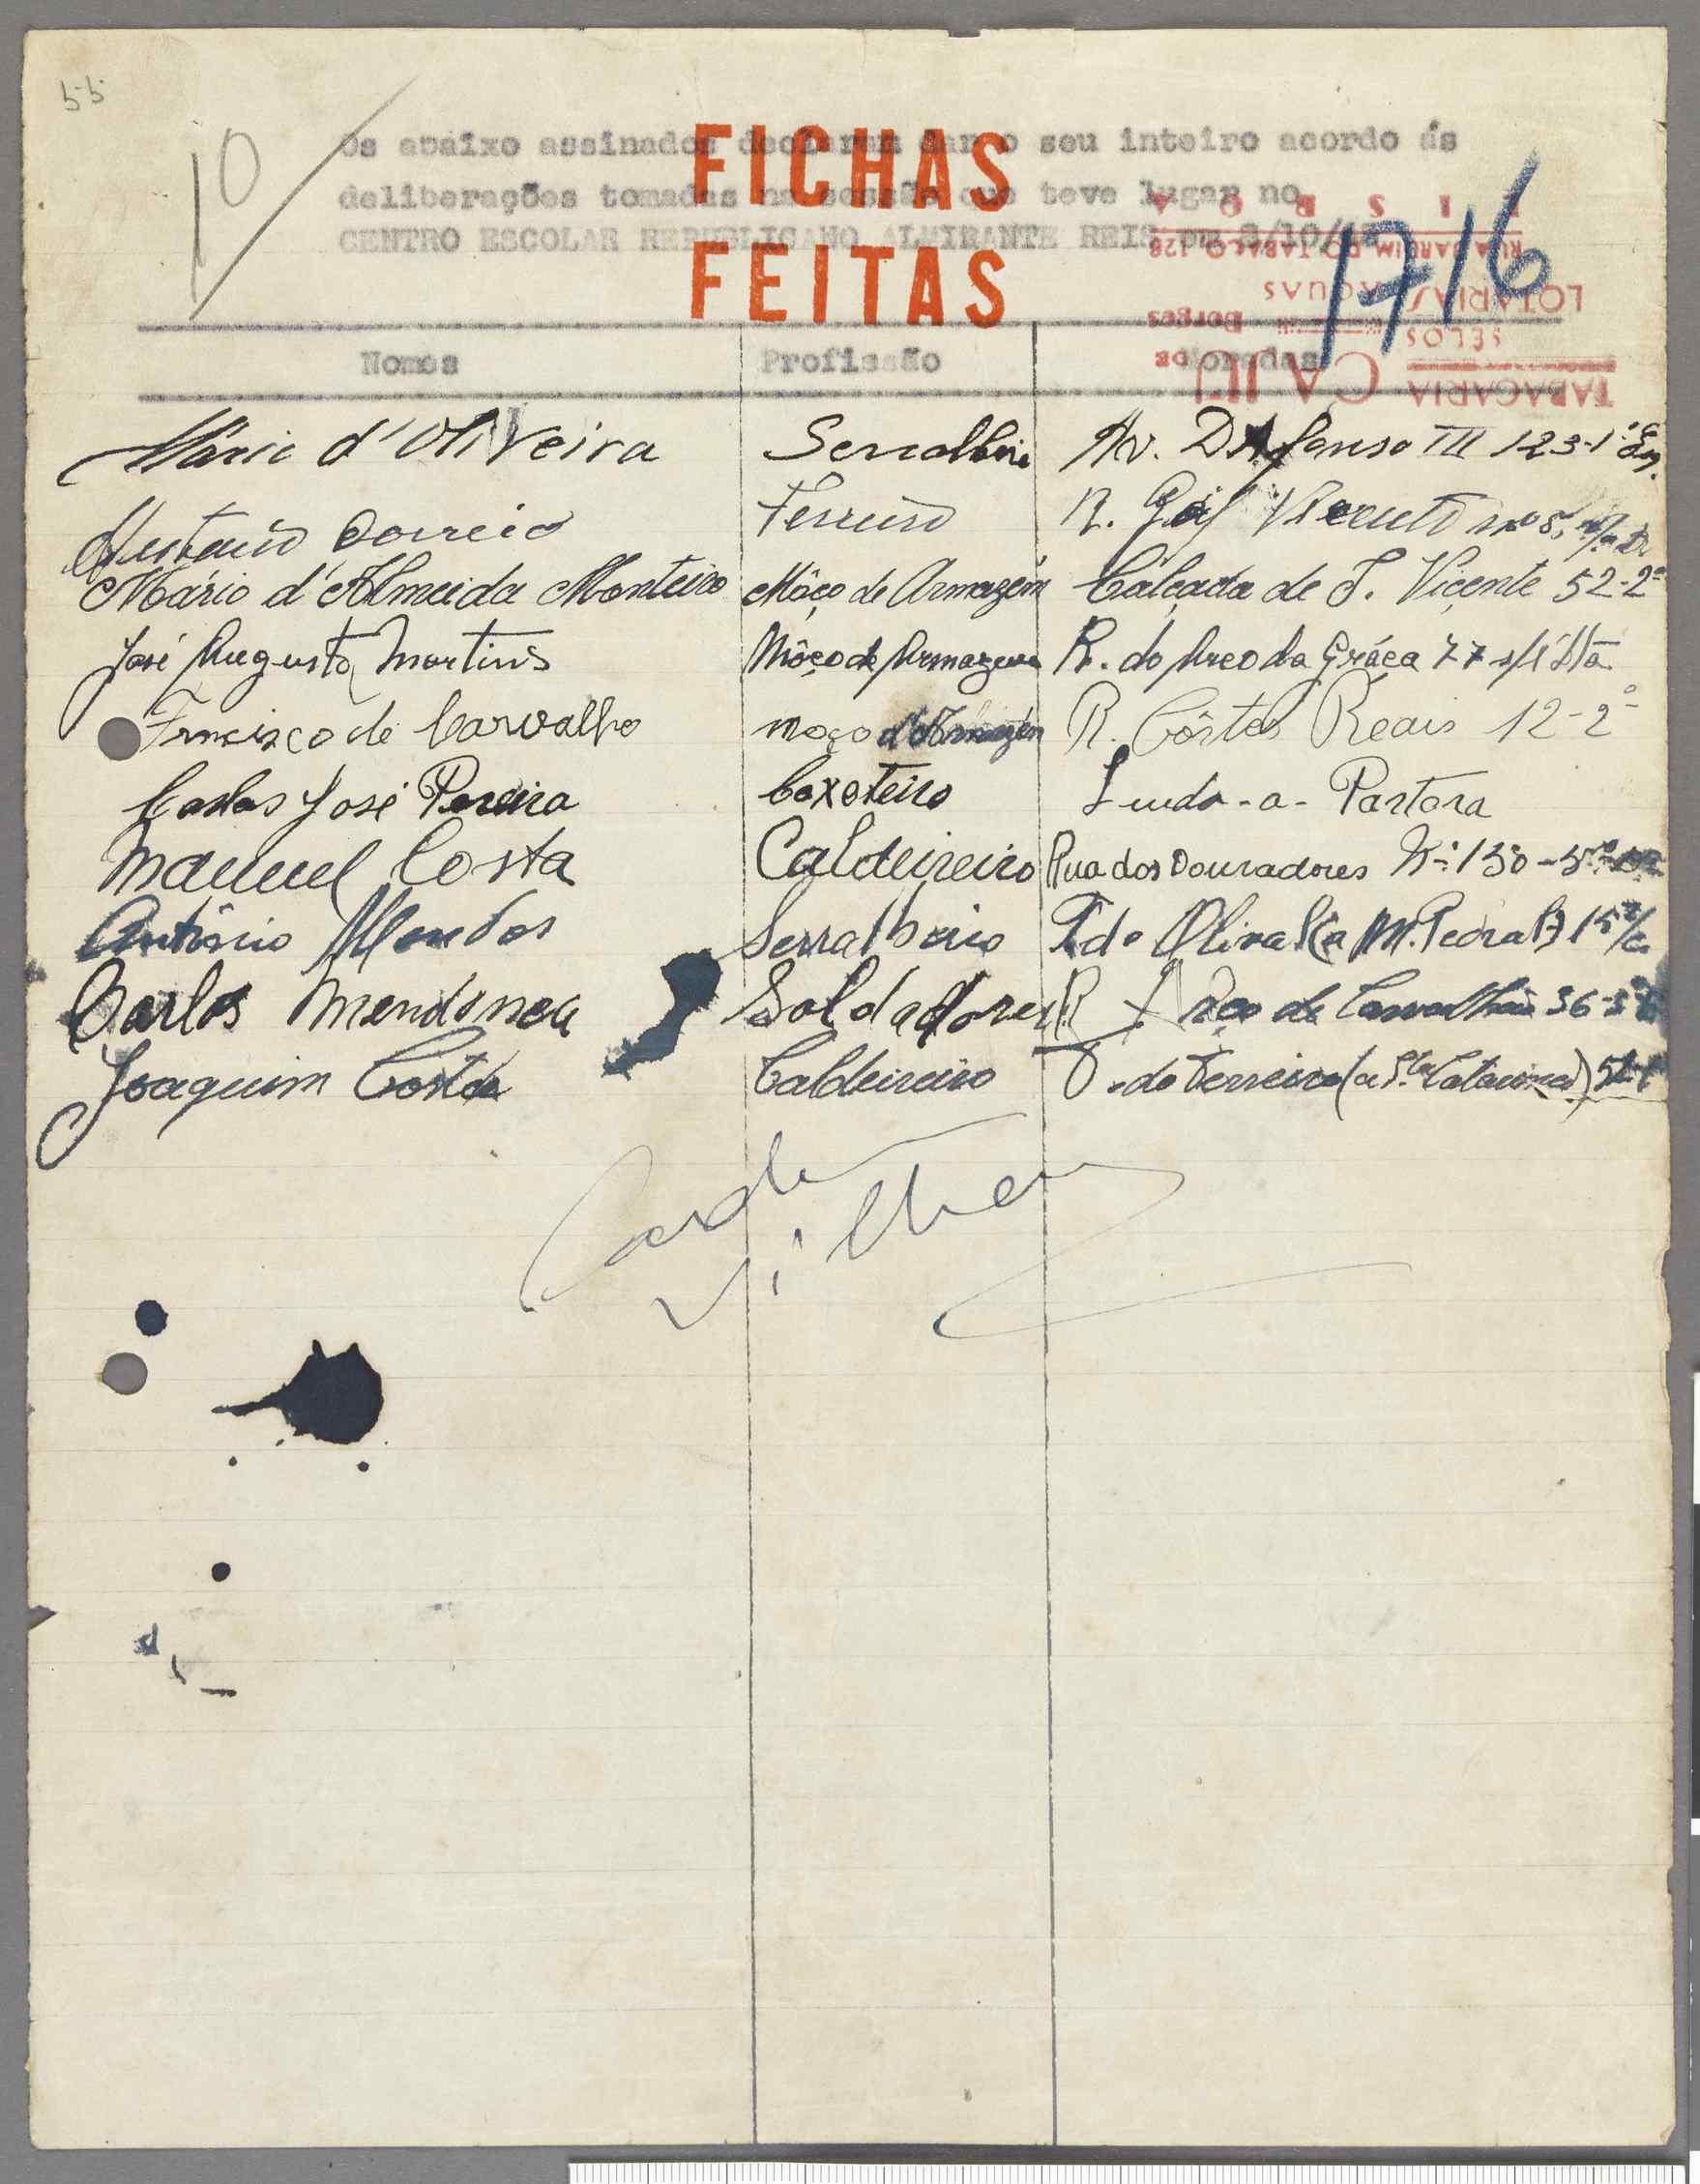 55
10
Os abaixo assinados declaram dar o seu inteiro acordo ás
deliberações tomadas na sessão que teve lugar no
CENTRO ESCOLAR REPUBLICANO ALMIRANTE REIS em
FICHAS
FEITAS
1716
TABACARIA CAJU
SELOS
LOTARIAS
DE Borges
RUA JARDIM DO TABACO 128
LISBOA
Nomes Profissão Moradas
Mário d'Oliveira Serralheiro Av. D. Afonso III 123-1º
Correia R. Gil Vicente
Mário d'Almeida Monteiro Môço de Armazém Calçada de S. Vicente 52-2º
José Augusto Martins Môço de Armazem R. do Arco da Gráça 77
Francisco de Carvalho moço d'Armazém R. Côrtes Reais 12-2º
Carlos José Pereira Caxoteiro Linda-a-Pastora
Manuel Costa Caldeireiro Rua dos Douradores Nº 150
António Mendes Serralheiro
Carlos Mendonça Soldador de Carvalhão 36
Joaquim Costa Caldeireiro